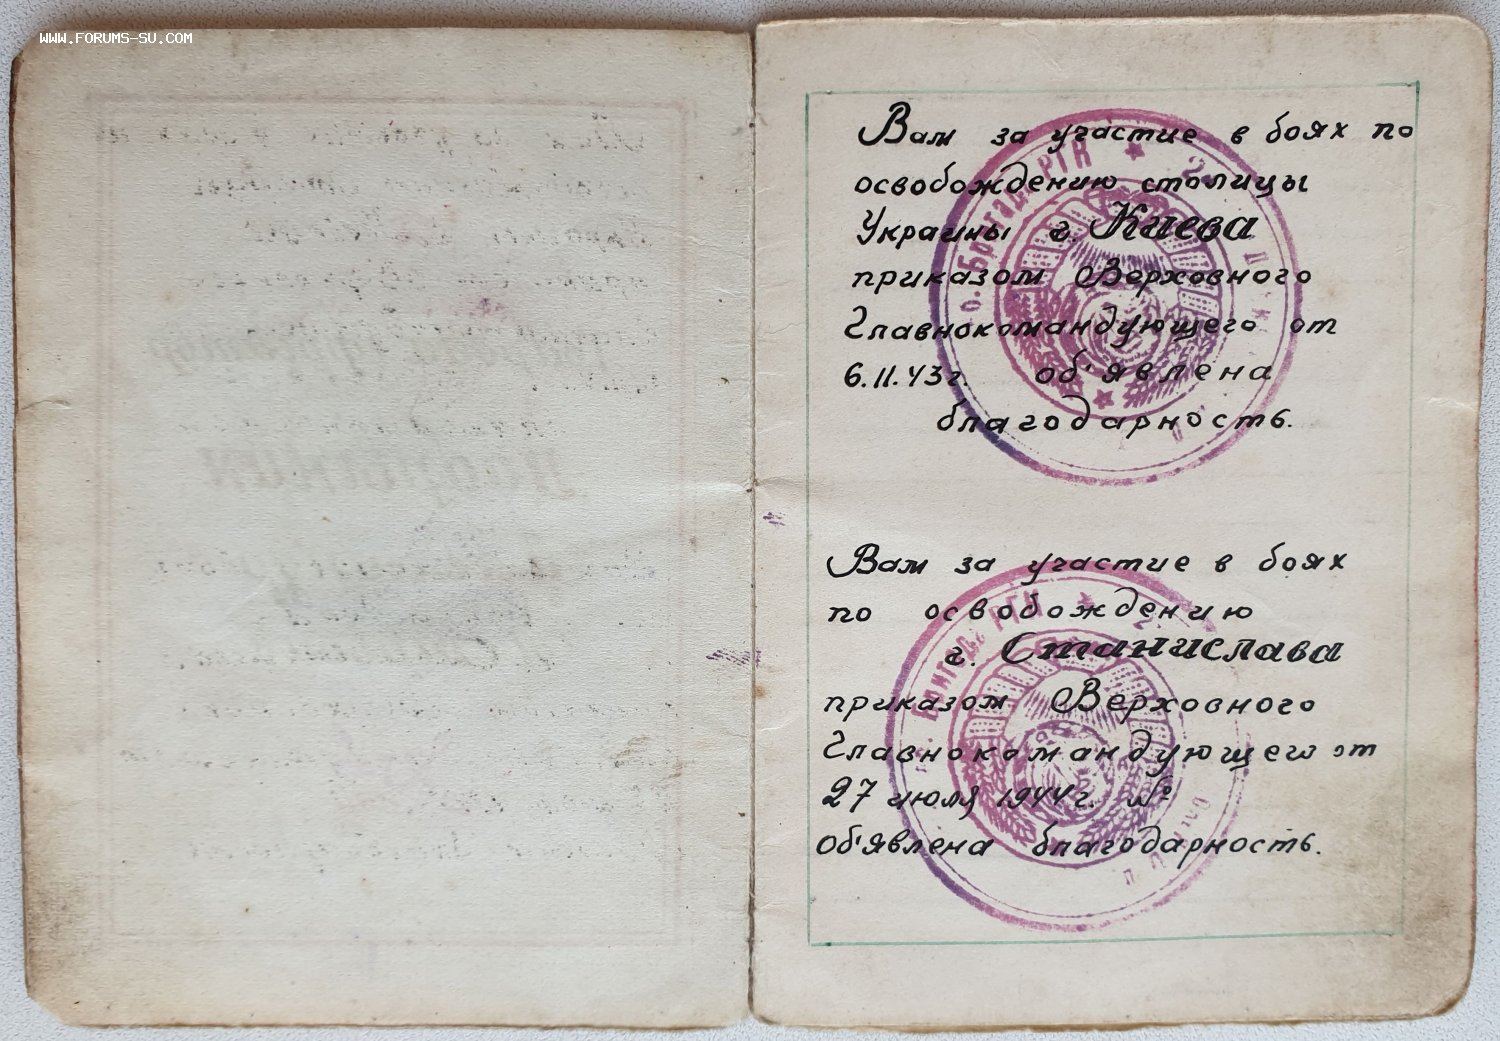 WWW.FORUMS-SU.COM
Вам за участие в боях по
освобождению столицы
Украины г. Киева
приказом Верховного
Главнокомандующего от
6.11.43г. об'явлена
благодарность.
Вам за участие в боях
по освобождению
г. Станислава
приказом Верховного
Главнокомандующего от
27 июля 1944г. №
об'явлена благодарность.
Бригада РГК
Бригада РГК